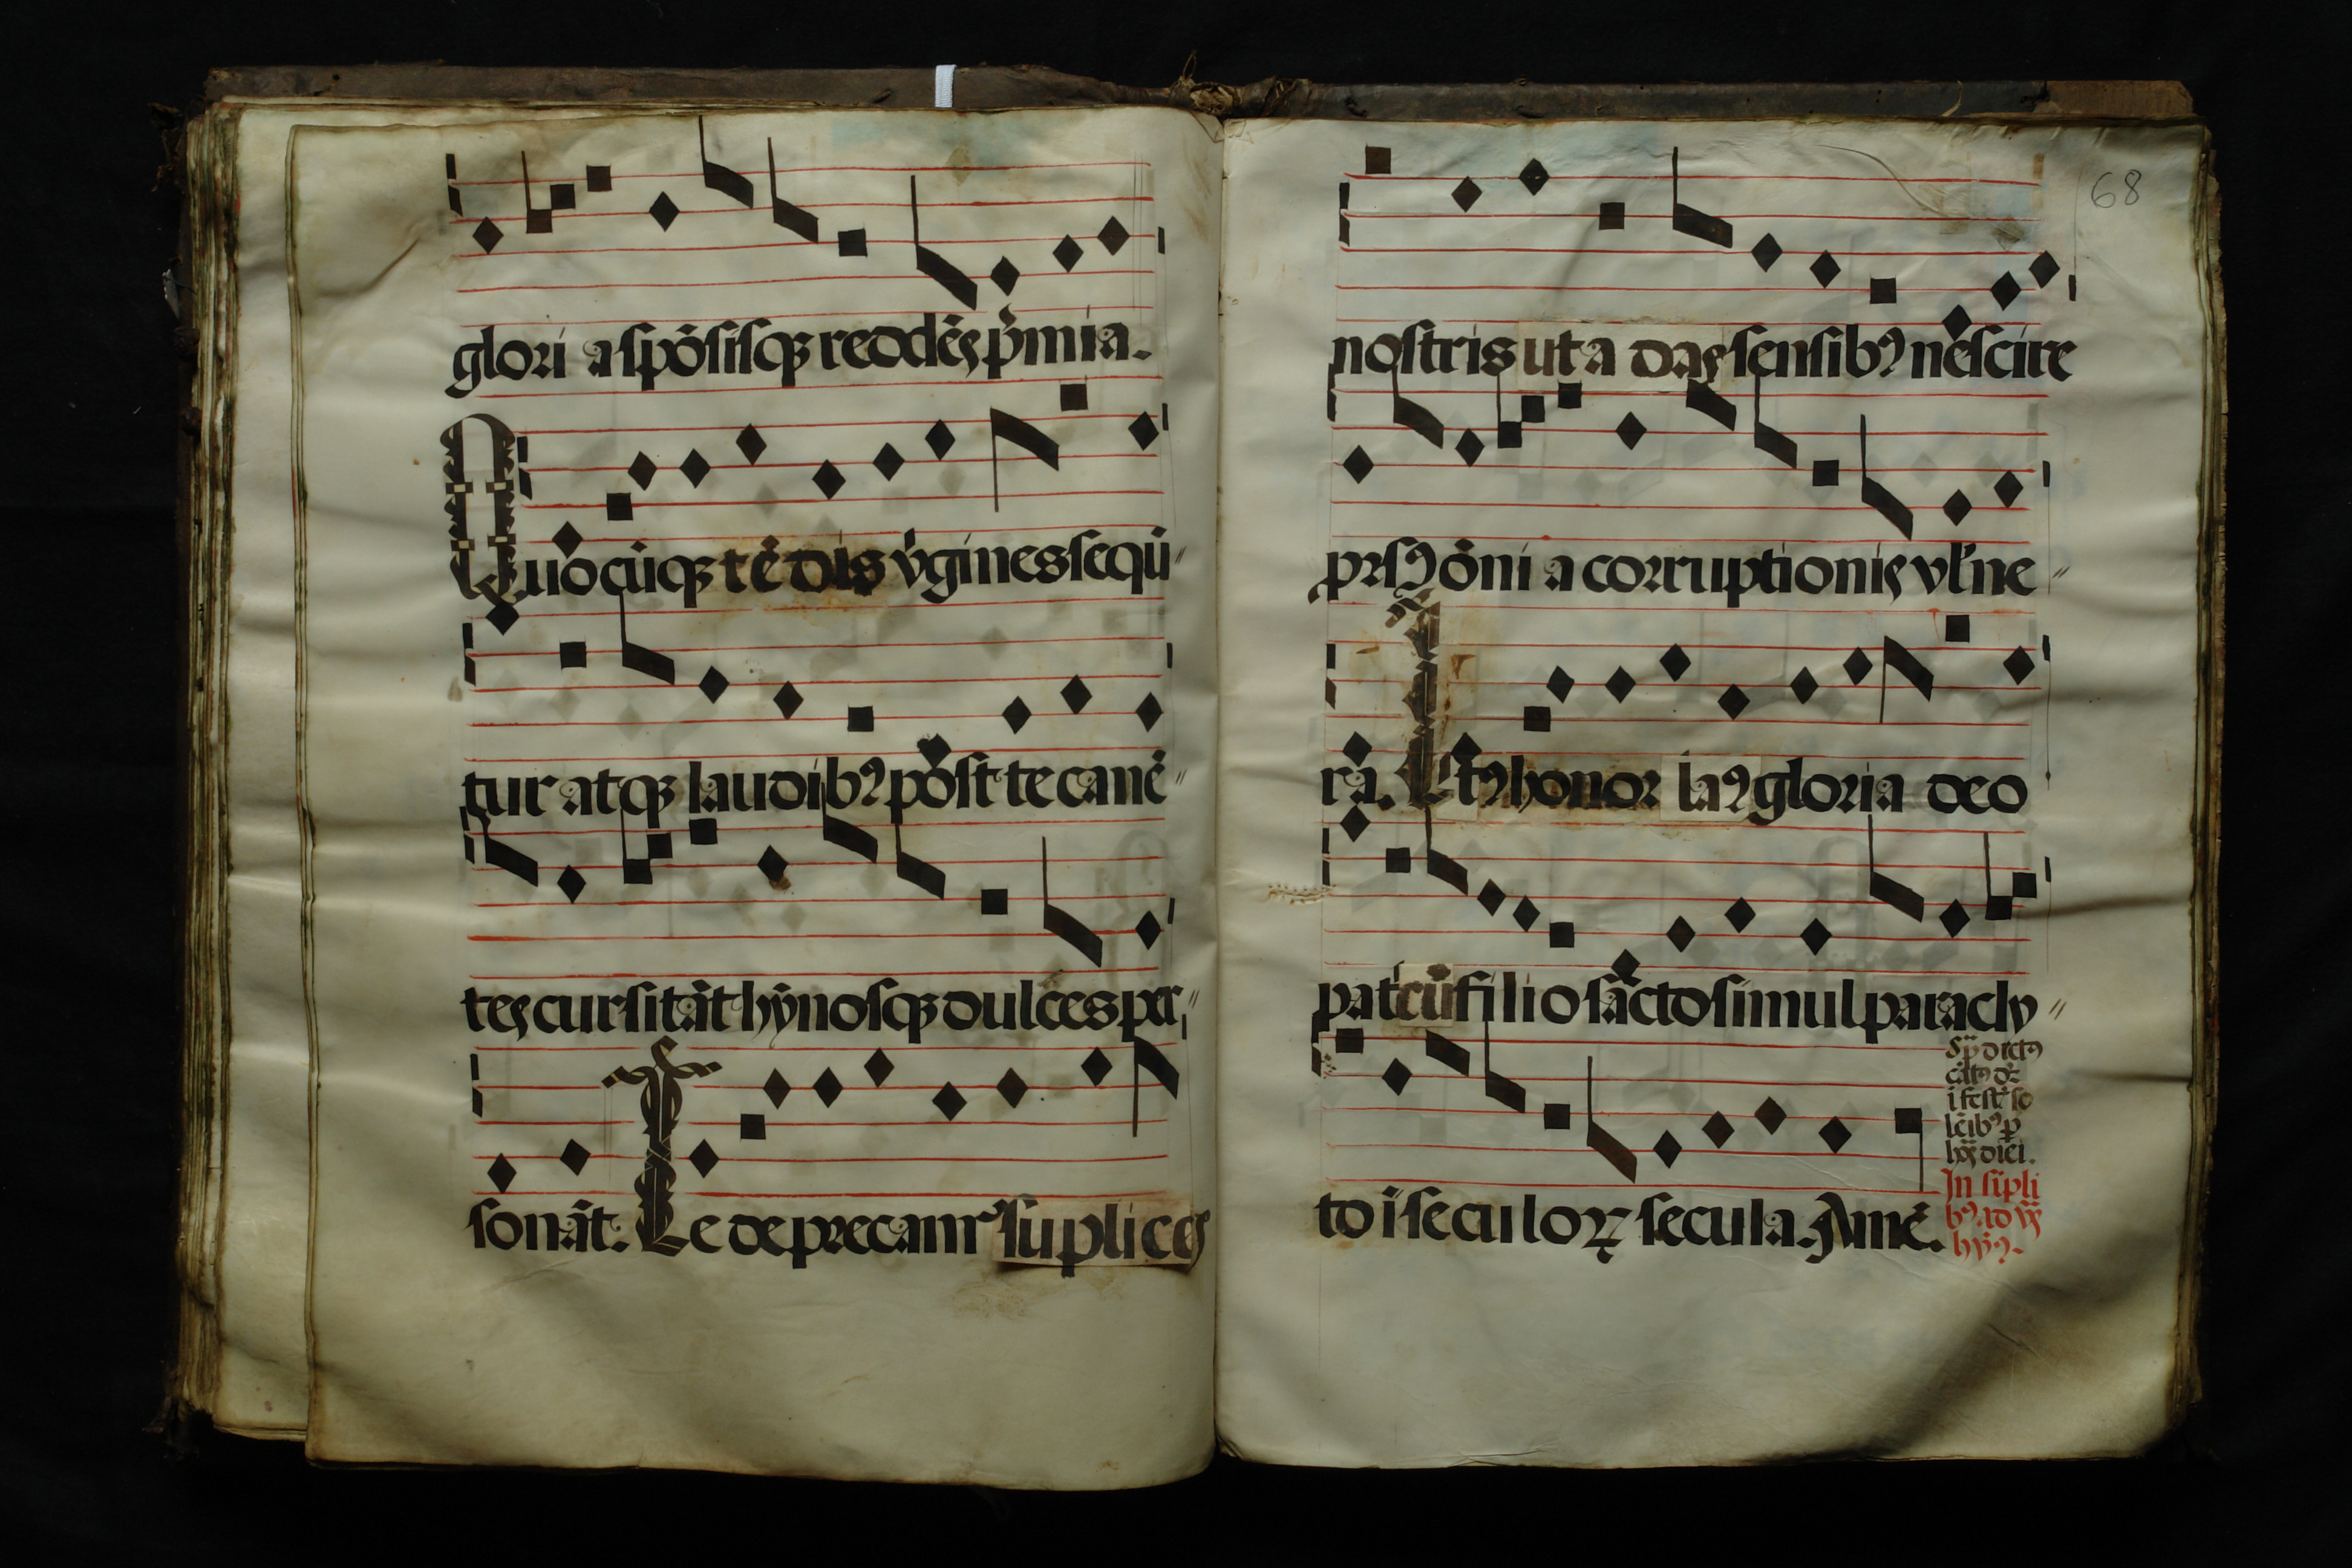 glori a spōsisqȝ reddēs p̄mia.
Quocūqȝ tēdis v̄gines sequū
tur atqȝ laudibꝰ post te canē
tes cursitāt hȳnosqȝ dulces per
sonāt. Te deprecamr᷑ suplices
68
nostris ut a das sensibꝰ nescire
prsꝰ oīni a corruptionis vl᷑ne
ra. honor laꝰ gloria deo
pat᷑ cū filio sācto simul paracly
to ī seculoꝝ secula. Amē.
dictꝰ
dici.
In sīpli